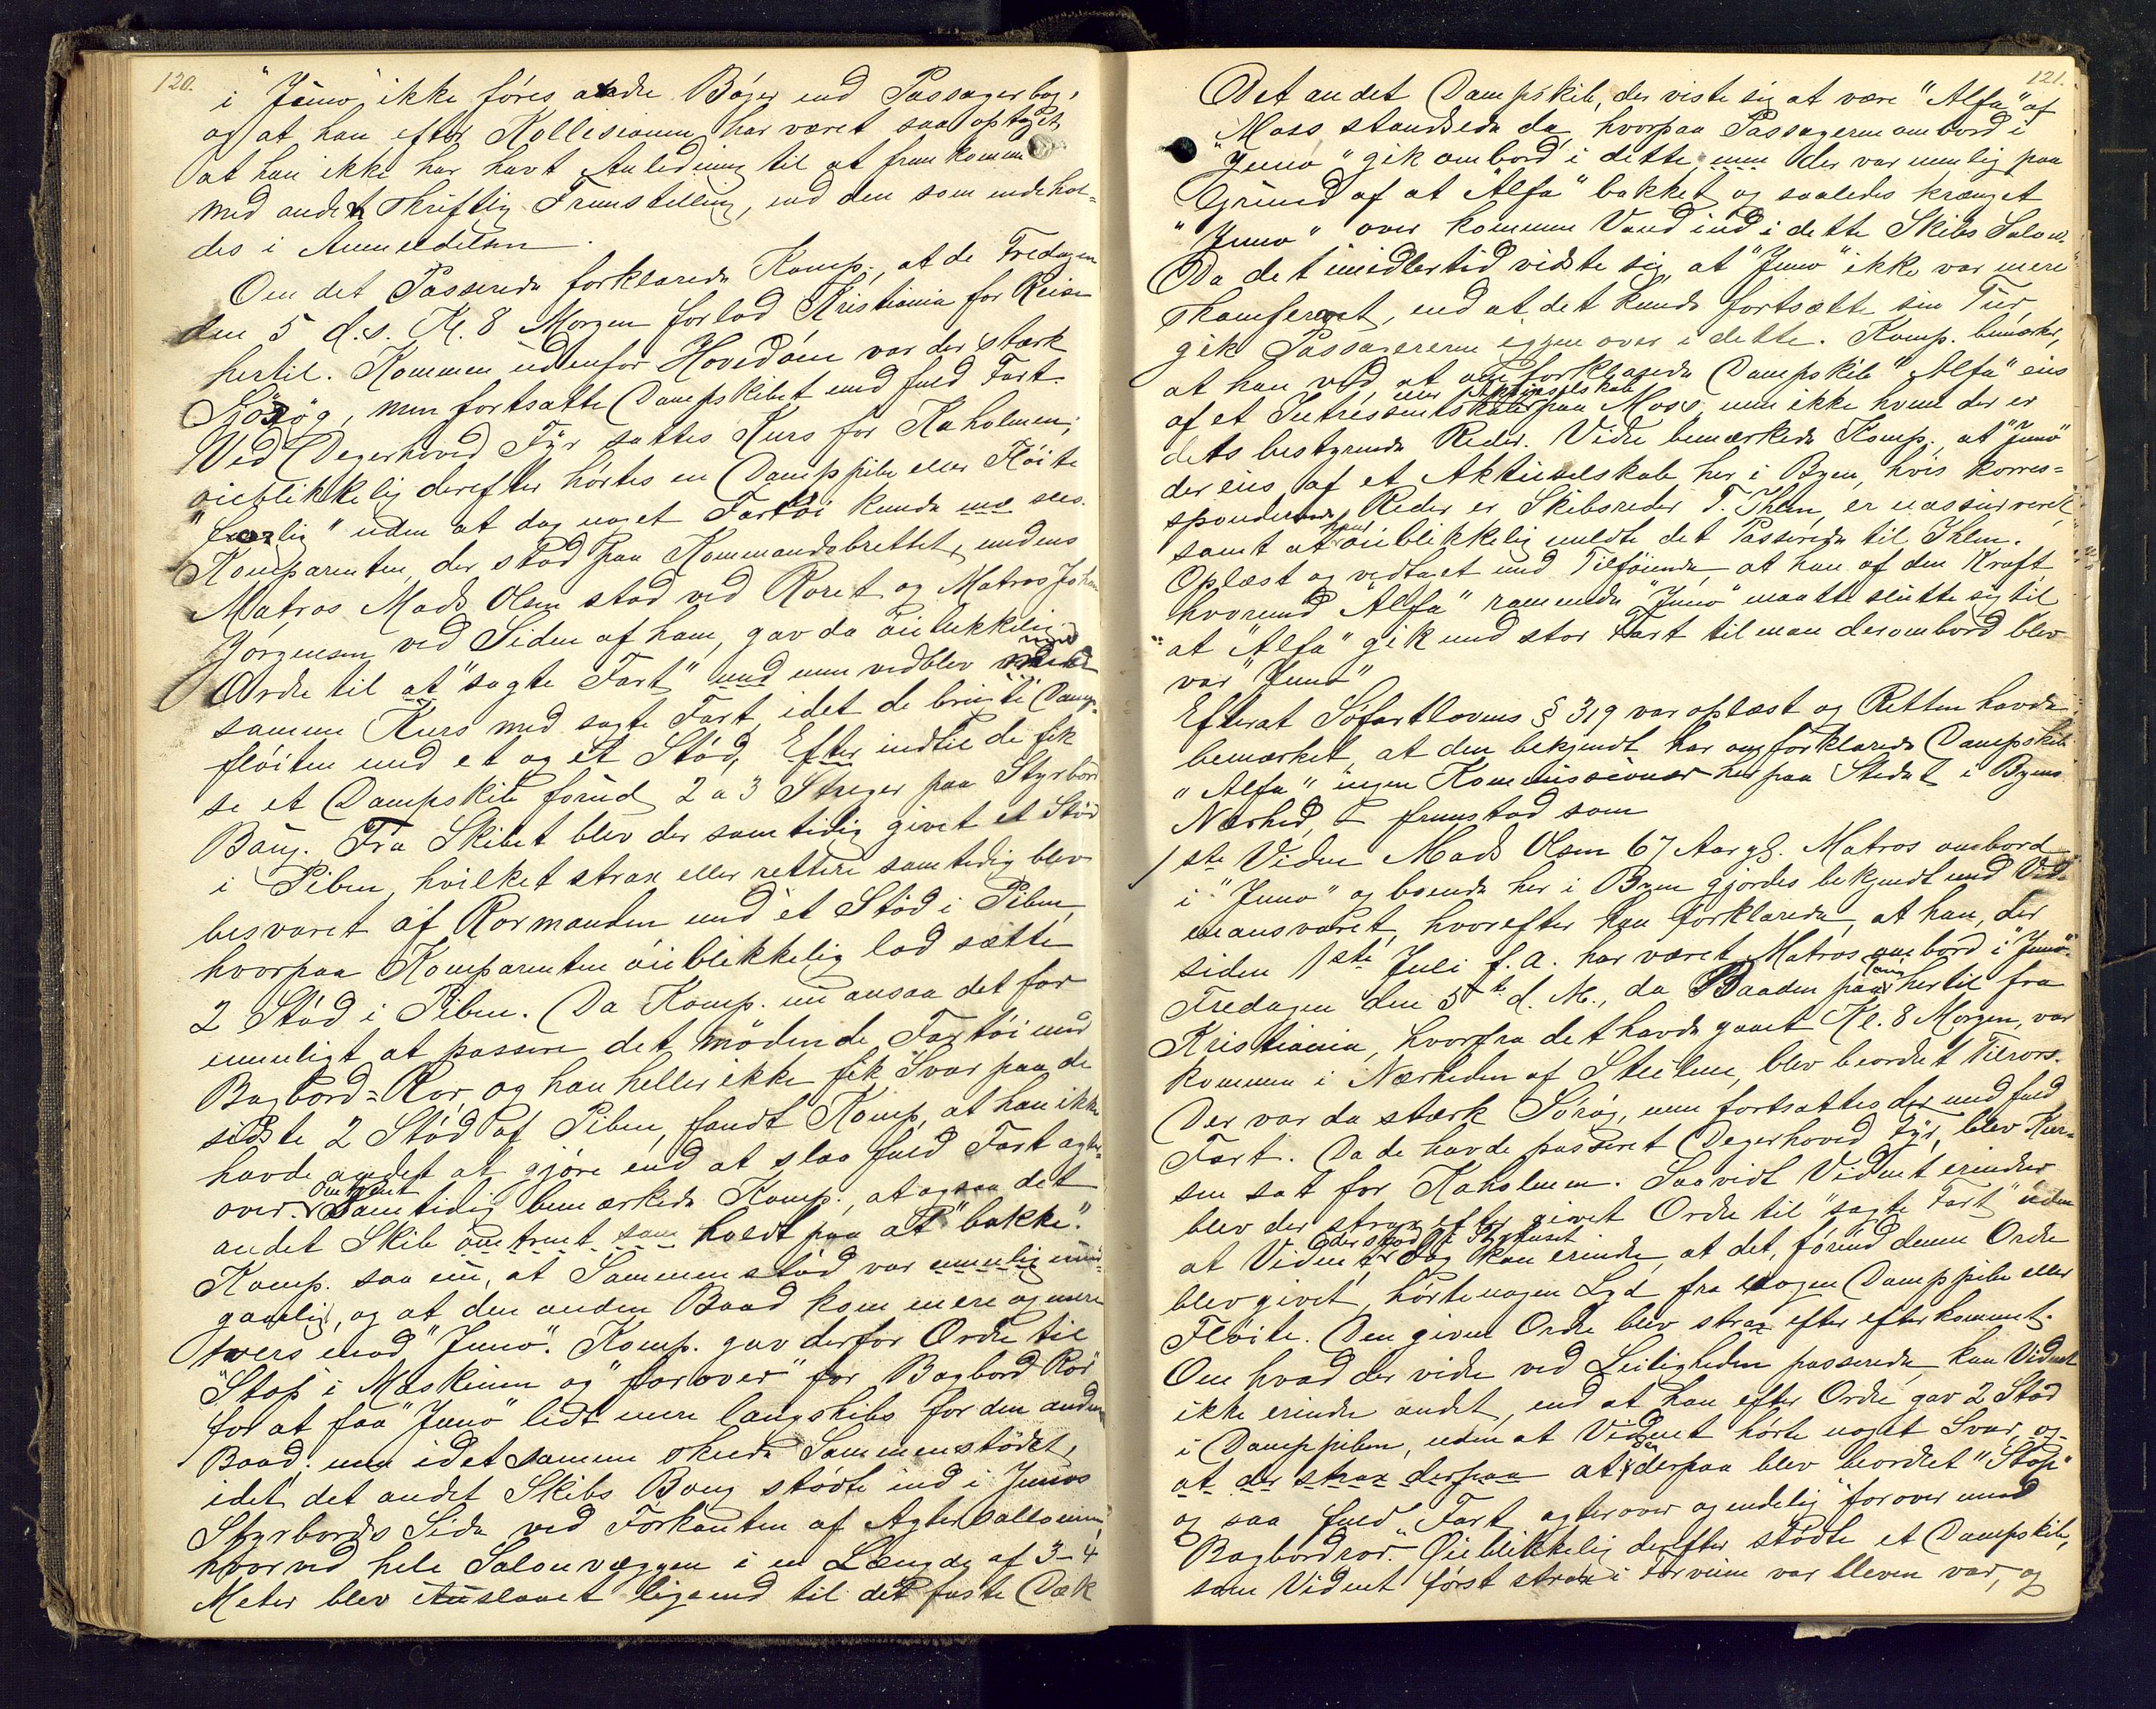 120.
i "Juno" ikke føres andre Bøger end Passagerbog,
og at han efter Kollesionen har været saa optaget,
at han ikke har havt Anledning til at fremkomme
med anden skriftlig Fremstilling, end den som indehol=
des i Anmeldelsen.
Om det Passerede forklarede Komp., at de Fredagen
den 5 d.s. Kl. 8 Morgen forlod Kristiania for Reise
hertil. Kommen udenfor Hovedøen var der stærk
Sjørøg, men fortsatte Dampskibet med fuld Fart.
Ved Degerhoved Fyr sattes Kurs for Kaholmen;
øieblikkelig derefter hørtes en Damppibe eller Fløite
uden at dog noget Fartøi kunde sees.
Komparenten, der stod paa Kommandobrettet, medens
Matros Mads Olsen stod ved Roret og Matros Johan
Jørgensen ved Siden af ham, gav da øieblikkelig
Ordre til at "sagte Fart" med men vedblev med
samme Kurs med sagte Fart, idet de brugte Damp-
fløiten med et og et Stød, Efter indtil de fik
se et Dampskib forud 2 a 3 Streger paa Styrbord
Baug. Fra Skibet blev der samtidig givet et Stød
i Piben, hvilket strax eller rettere samtidig blev
besvaret af Rormanden med et Stød i Piben,
hvorpaa Komparenten øieblikkelig lod sætte
2 Stød i Piben. Da Komp. nu ansaa det for
umuligt at passere det mødende Fartøi med
Bagbord=Ror, og han heller ikke fik Svar paa de
sidste 2 Stød af Piben, fandt Komp, at han ikke
havde andet at gjøre end at slaa fuld Fart agter-
over. Omtrent Samtidig bemærkede Komp., at ogsaa det
andet Skib omtrent som holdt paa at "bakke".
Komp. saa nu, at Sammenstød var umulig und-
gaaelig, og at den anden Baad kom mere og mere
tvers mod "Juno". Komp. gav derfor Ordre til
"Stop" i Maskinen og "forover" for Bagbord Ror
for at faa "Juno" lidt mere langskibs for den anden
Baad; men i det samme skede Sammenstødet,
idet det andet Skibs Baug stødte ind i Junos
Styrbords Side ved Forkanten af Agtersallonen
hvorved hele Salonvæggen i en Længde af 3-4
Meter blev indslaaet ligened til det faste Dæk
121.
Det andet Dampskib, der viste sig at være "Alfa" af
Moss standsede da, hvorpaa Passagererne ombord i
"Juno" gik ombord i dette, men der var nemlig paa
Grund af at "Alfa" bakket og saaledes krænget
"Juno" over kommen Vand ind i dette Skibs Salon.
Da det imidlertid vidste sig, at "Juno" ikke var mere
ramponeret, end at det kunde fortsætte sin Tur,
gik Passagererne igjen over i dette. Komp. bemærker,
at han ved, at omforklarede Dampskib "Alfa" eies
af et Intressentskab eller Aktieselskab paa Moss, men ikke hvem der er
dets bestyrende Reder. Videre bemærkede Komp. at "Juno"
der eies af et Aktieselskab her i Byen, hvis korres=
sponderende Reder er Skibsreder T. Ihlen, er uassurreret,
samt at han øieblikkelig meldte det Passerede til Ihlen.
Oplæst og vedtaget med Tilføiende, at han af den Kraft
hvormed "Alfa" rammede "Juno" maatte slutte sig til
at "Alfa" gik med stor Fart til man derombord blev
var "Juno"
Efterat Søfartlovens § 319 var oplæst og Retten havde
bemærket, at den bekjendt har omforklarede Dampskib
"Alfa" ingen Kommissionær her paa Stedet i Byens
Nærhed, fremstod som
1ste Vidne Mads Olsen 67 Aar gl. Matros ombord
i "Juno" og boende her i Byen gjordes bekjendt med Vid-
neansvaret, hvorefter han forklarede, at han, der
siden 1ste Juli f.A. har været Matros ombord i "Juno".
Fredagen den 5te d. M., da Baaden var paa hertil fra
Kristiania, hvorfra det havde gaaet Kl. 8 Morgen, var
kommen i Nærheden af Steilene, blev beordret Tilrors.
Der var da stærk Sørøg, men fortsattes der med fuld
Fart. Da de havde passeret Degerhoved Fyr, blev Kur-
sen sat for Kaholmen. Saavidt Vidnet erindrer
blev der strax efter givet Ordre til "sagte Fart" uden
at Vidnet, der stod i Styrhuset dog kan erindre, at det, forend denne Ordre
blev givet, hørte nogen Lyd fra nogen Damppibe eller
Fløite. Den givne Ordre blev strax efter efterkommet.
Om hvad der videre ved Leiligheden passerede, kan Vidnet
ikke erindre andet, end at han efter Ordre gav 2 Stød
i Damppiben, uden at Vidnet hørte noget Svar, og
at der strax derpaa at der derpaa blev beordret "Stop"
og saa fuld Fart agterover og endelig "forover med
Bagbordror". Øieblikkelig derefter stødte et Dampskib,
som Vidnet først strax i Forveien var bleven var, og